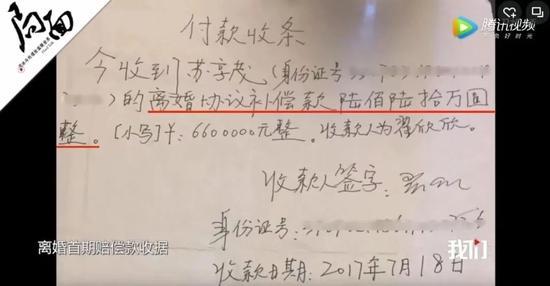 局面
腾讯视频
付款收条
今收到了苏享茂（身份证号
）的离婚协议补偿款陆佰陆拾万圆
整。[小写]¥：6600000元整。收款人为翟欣欣。
收款人签字：
身份证号：
离婚首期赔偿款收据
我们
收款日期：2017年7月18日